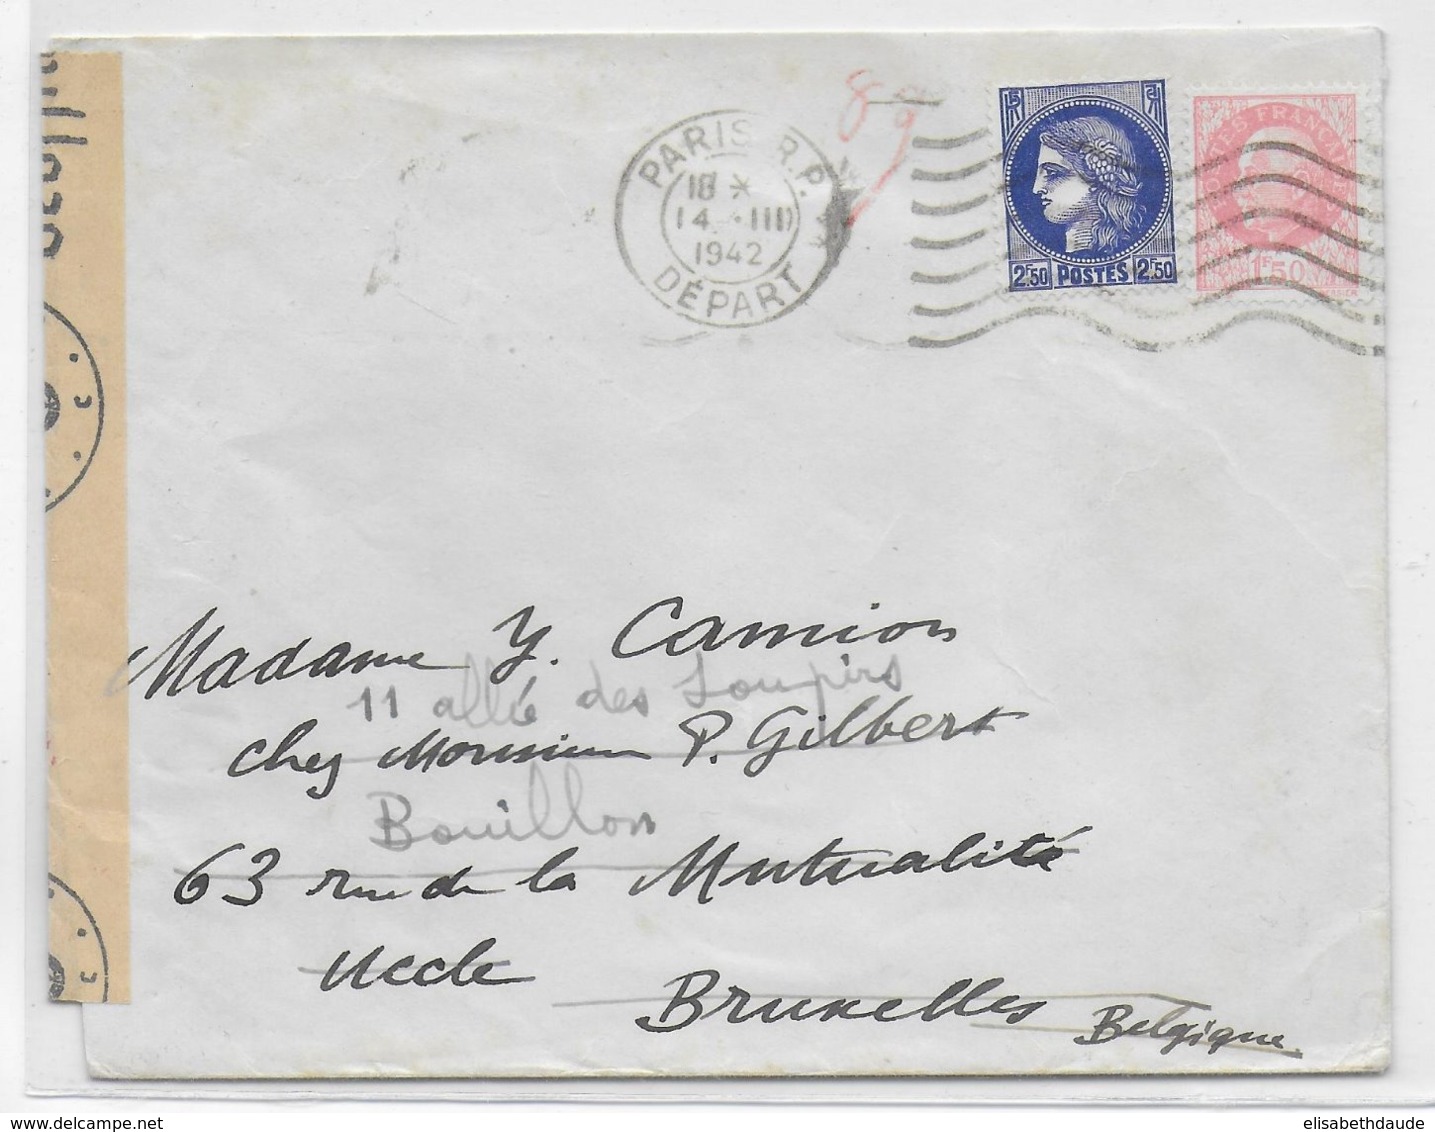 PARIS R.P.
18 *
14 - III
1942
DÉPART
89
2F50 POSTES 2F50
POSTES FRANÇAISES
1F50
Geöffnet
c
c
Madame Y. Camion
11 allée des Soupirs
chez Monsieur P. Gilbert
Bouillon
63 rue de la Mutualité
Uccle
Bruxelles Belgique
elisabethdaude